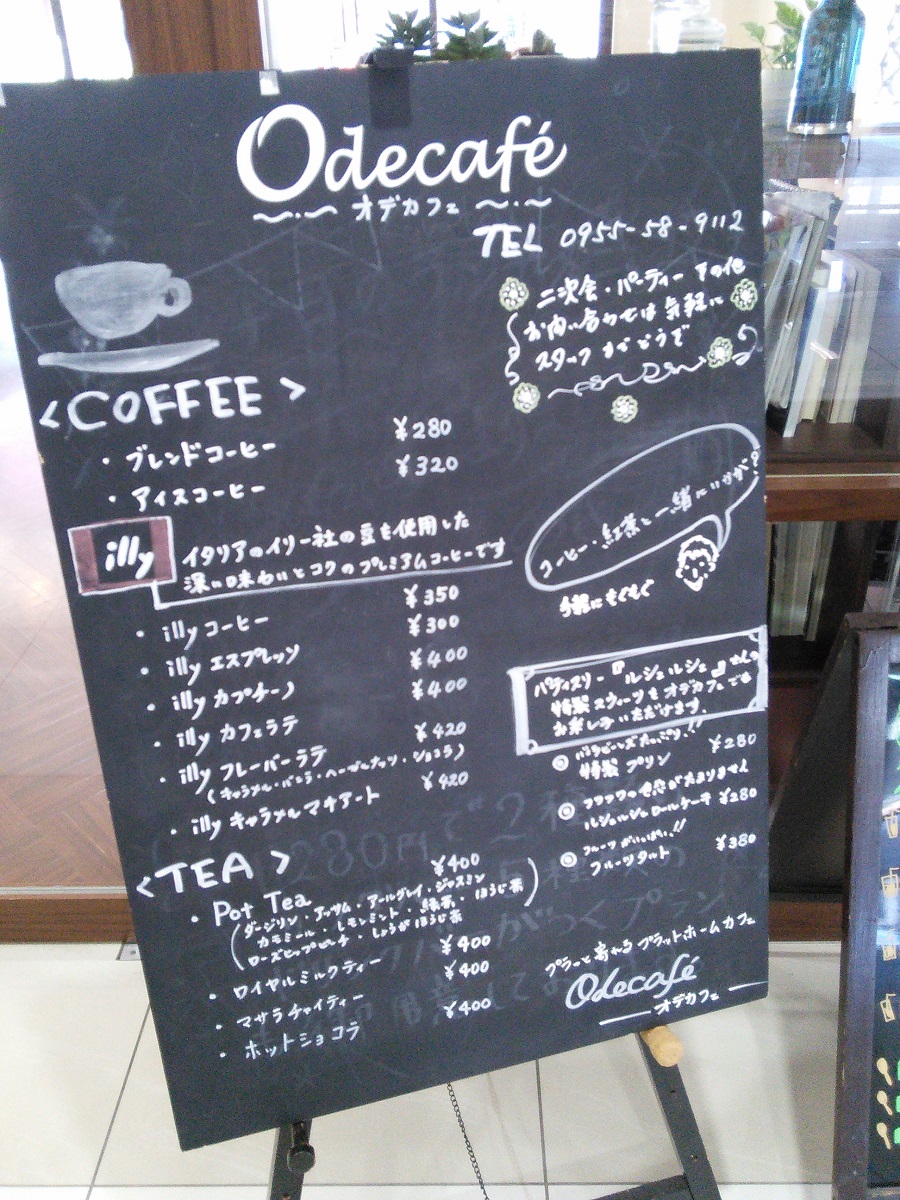 Odecafé
オデカフェ
TEL 0955-58-9112
二次会・パーティー その他
お問い合わせは気軽に
スタッフまでどうぞ
<COFFEE>
・ブレンドコーヒー ¥280
・アイスコーヒー ¥320
illy
イタリアのイリー社の豆を使用した
深い味わいとコクのプレミアムコーヒーです
・illy コーヒー ¥350
・illy エスプレッソ ¥300
・illy カプチーノ ¥400
・illy カフェラテ ¥400
・illy フレーバーラテ ¥420
(キャラメル・バニラ・ヘーゼルナッツ・ショコラ)
・illy キャラメルマキアート ¥420
<TEA>
・Pot Tea ¥400
(ダージリン・アッサム・アールグレイ・ジャスミン
カモミール・レモンミント・緑茶・ほうじ茶
ローズヒップピーチ・しょうがほうじ茶)
・ロイヤルミルクティー ¥400
・マサラチャイティー ¥400
・ホットショコラ ¥400
コーヒー・紅茶と一緒にいかが?
手軽にもぐもぐ
パティスリー『ルシュルシュ』さんの
特製スウィーツをオデカフェでも
お楽しみいただけます。
◎バニラビーンズたっぷり!!
特製 プリン ¥280
◎フワフワの食感がたまりません
ルシュルシュロールケーキ ¥280
◎フルーツがいっぱい!!
フルーツタルト ¥380
プラーと寄れるプラットホームカフェ
Odecafé
オデカフェ